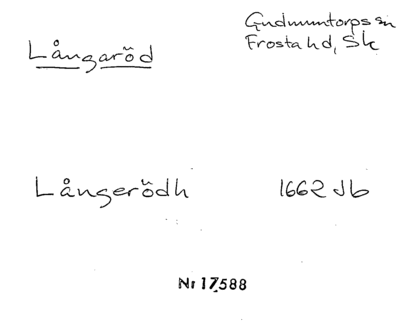 Långaröd
Gudmuntorps sn
Frosta hd, Sk
Långerödh 1662 Jb
Nr 17588